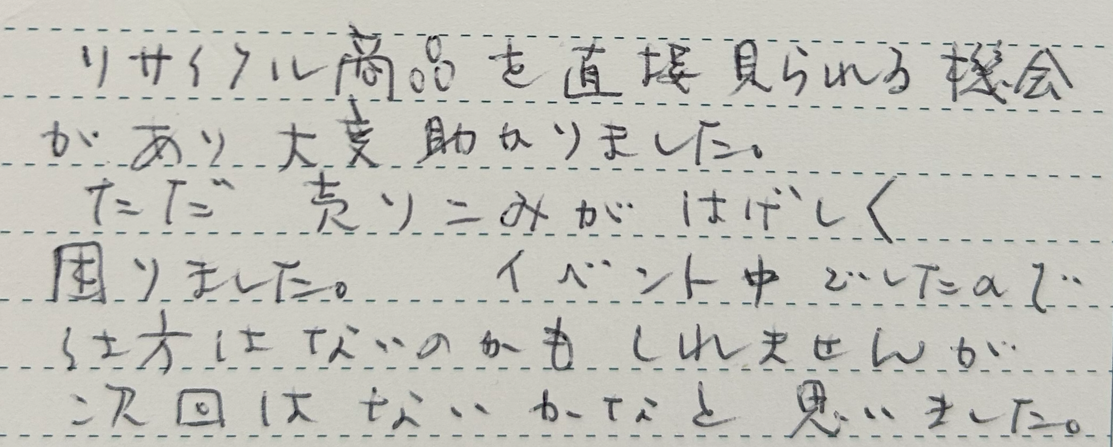 リサイクル商品を直接見られる機会
があり大変助かりました。
ただ 売りこみがはげしく
困りました。 イベント中でしたので
仕方はないのかもしれませんが
次回はないかなと思いました。